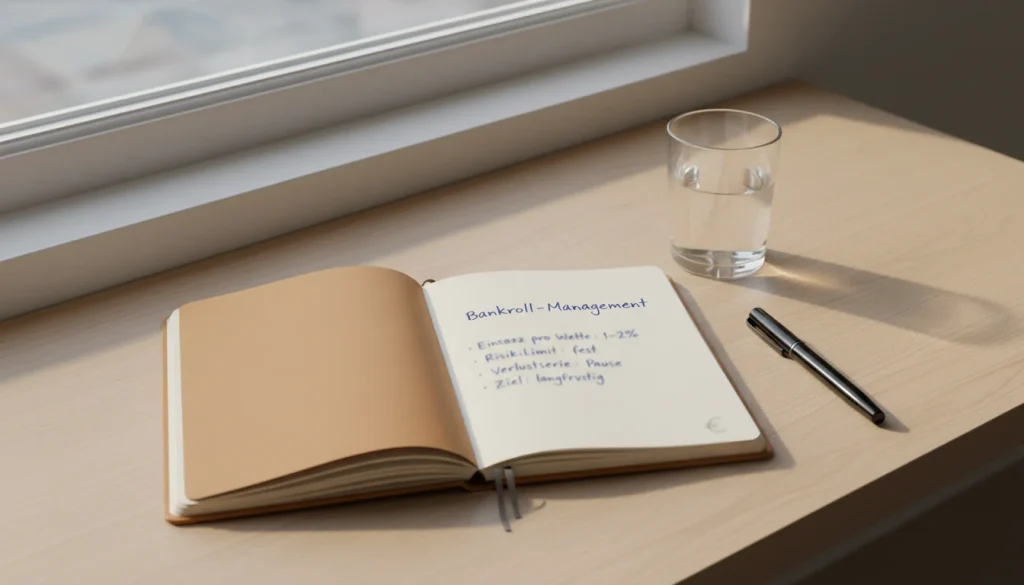 Bankroll-Management
• Einsazz pro Wette : 1-2%
• RisikiLimit : fest
• Verlustserie : Pause
• Ziel : langfrustig
€